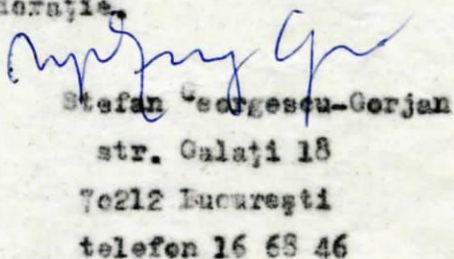 Stefan Georgescu-Gorjan
str. Galaţi 18
70212 Bucureşti
telefon 16 68 46